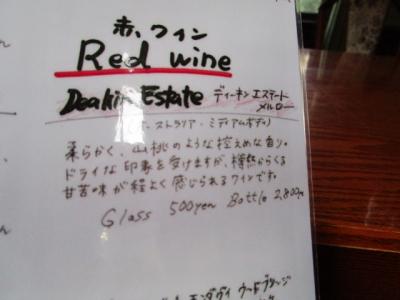 赤ワイン
Red wine
Deakin Estate ディーキン エステート
メルロー
ストラリア・ミディアムボディ)
柔らかく、山桃のような控えめな香り。
ドライな印象を受けますが、樽熟からくる
甘苦味が程よく感じられるワインです。
Glass 500yen Bottle 2,800